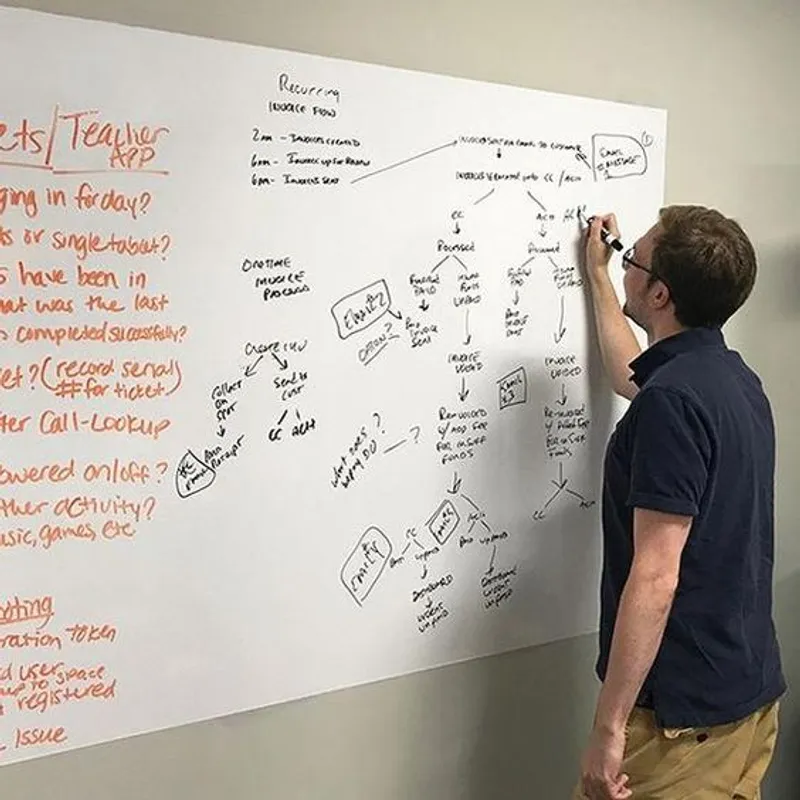 ets/Teacher
APP
ging in for day?
ts or single tablet?
s have been in
hat was the last
completed successfully?
et? (record serial
# for ticket)
ter Call-Lookup
owered on/off?
ther activity?
usic, games, etc
oting
ration Token
d user space
up to
registered
Issue
Recurring
INVOICE FLOW
2AM - INVOICES CREATED
6AM - INVOICES UP FOR REVIEW
6PM - INVOICES SENT
INVOICE SENT VIA EMAIL TO CUSTOMER
EMAIL
MESSAGE
1
CC / ACH
CC
ACH
ACH
PROCESSED
PROCESSED
PAID
UNPAID
PAID
UNPAID
EMAIL 2
OPTION?
INVOICE
INVOICE
VOIDED
INVOICE
VOIDED
EMAIL
#3
RE-INVOICED
W/ ADD FEE
FOR INSUFF
FUNDS
RE-INVOICED
W/ Added FEE
FOR INSUFF
FUNDS
WHAT DOES
DO?
?
CC
ACH
EMAIL#
CC
ACH
EMAIL#
PAID
UNPAID
PAID
UNPAID
DASHBOARD
URGENT
UNPAID
DASHBOARD
URGENT
UNPAID
ONETIME
INVOICE
PROCESS
CREATE INV
COLLECT
ON
SPOT
SEND TO
CUST
CC ACH
RECEIPT